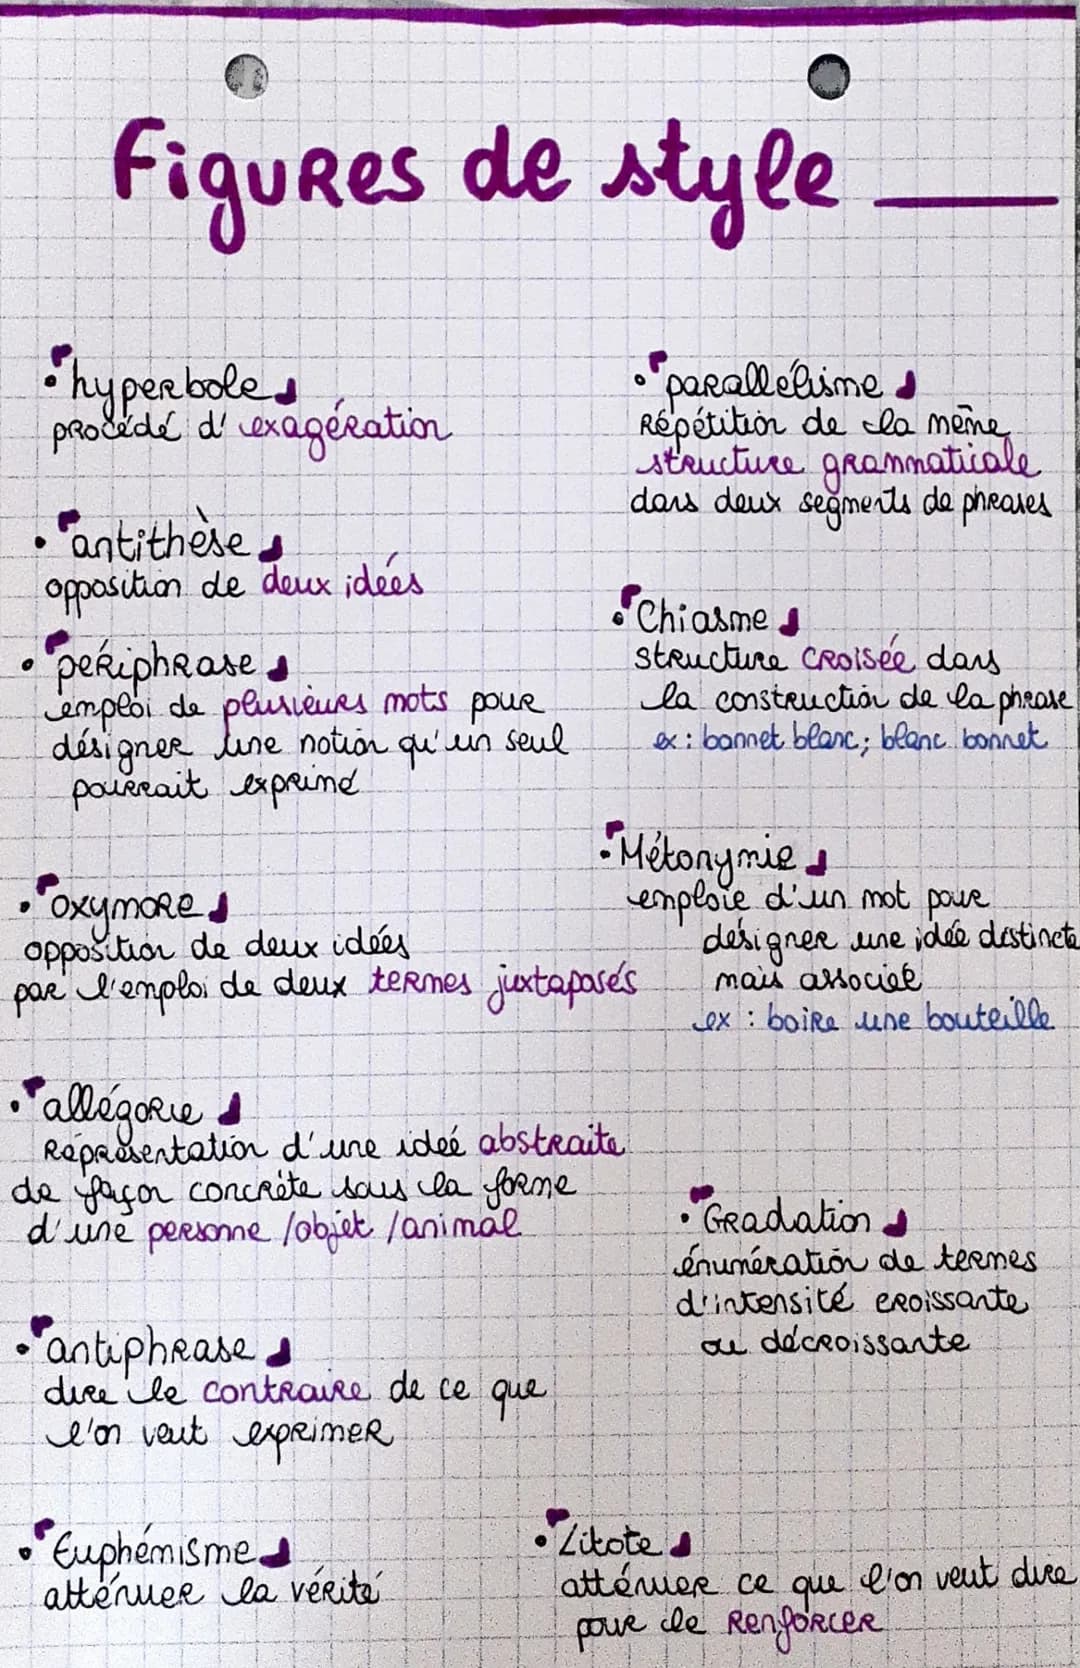 Figures de style
• hyperbole
procédé d' exagération
• antithèse
opposition de deux idées
• périphrase
emploi de plusieurs mots pour
désigner une notion qu'un seul
pourrait exprimé
• oxymore
opposition de deux idées
par l'emploi de deux termes juxtaposés
• allégorie
Représentation d'une idée abstraite
de façon concrète sous la forme
d'une personne /objet /animal
• antiphrase
dire le contraire de ce que
l'on veut exprimer
• Euphémisme
atténuer la vérité
• parallélisme
Répétition de la même
structure grammaticale
dans deux segments de phrases
• Chiasme
structure croisée dans
la construction de la phrase
ex : bonnet blanc; blanc bonnet
• Métonymie
emploie d'un mot pour
désigner une idée distincte
mais associée
ex : boire une bouteille
• Gradation
énumération de termes
d'intensité croissante
ou décroissante
• Litote
atténuer ce que l'on veut dire
pour le renforcer